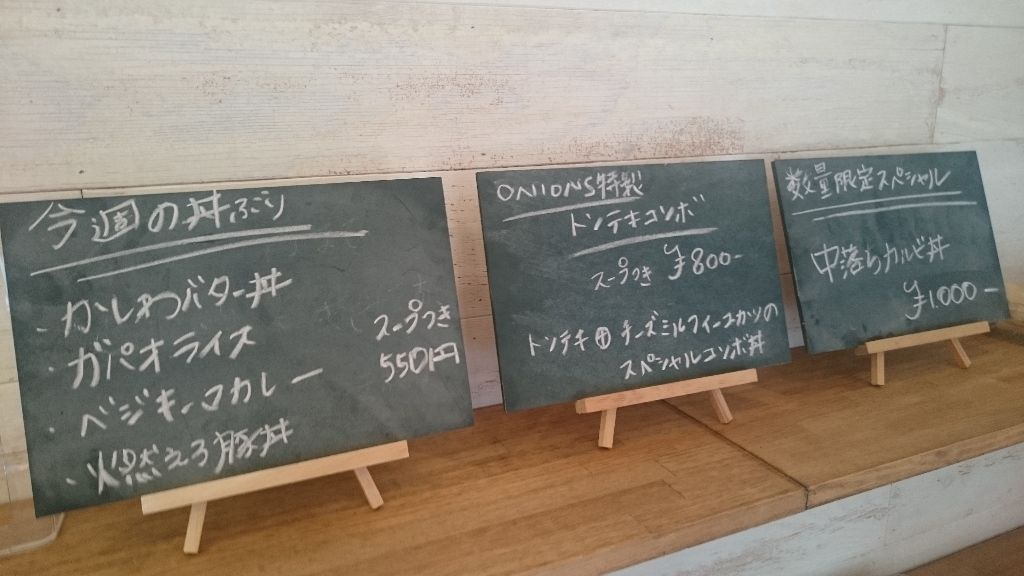 今週の丼ぶり
・かしわバター丼
・ガパオライス
・ベジキーマカレー
・燃えろ豚丼
スープつき
550円
ONIONS特製
トンテキコンボ
スープつき ¥800-
トンテキ⊕チーズミルフィーユカツの
スペシャルコンボ丼
数量限定スペシャル
中落ちカルビ丼
¥1000-